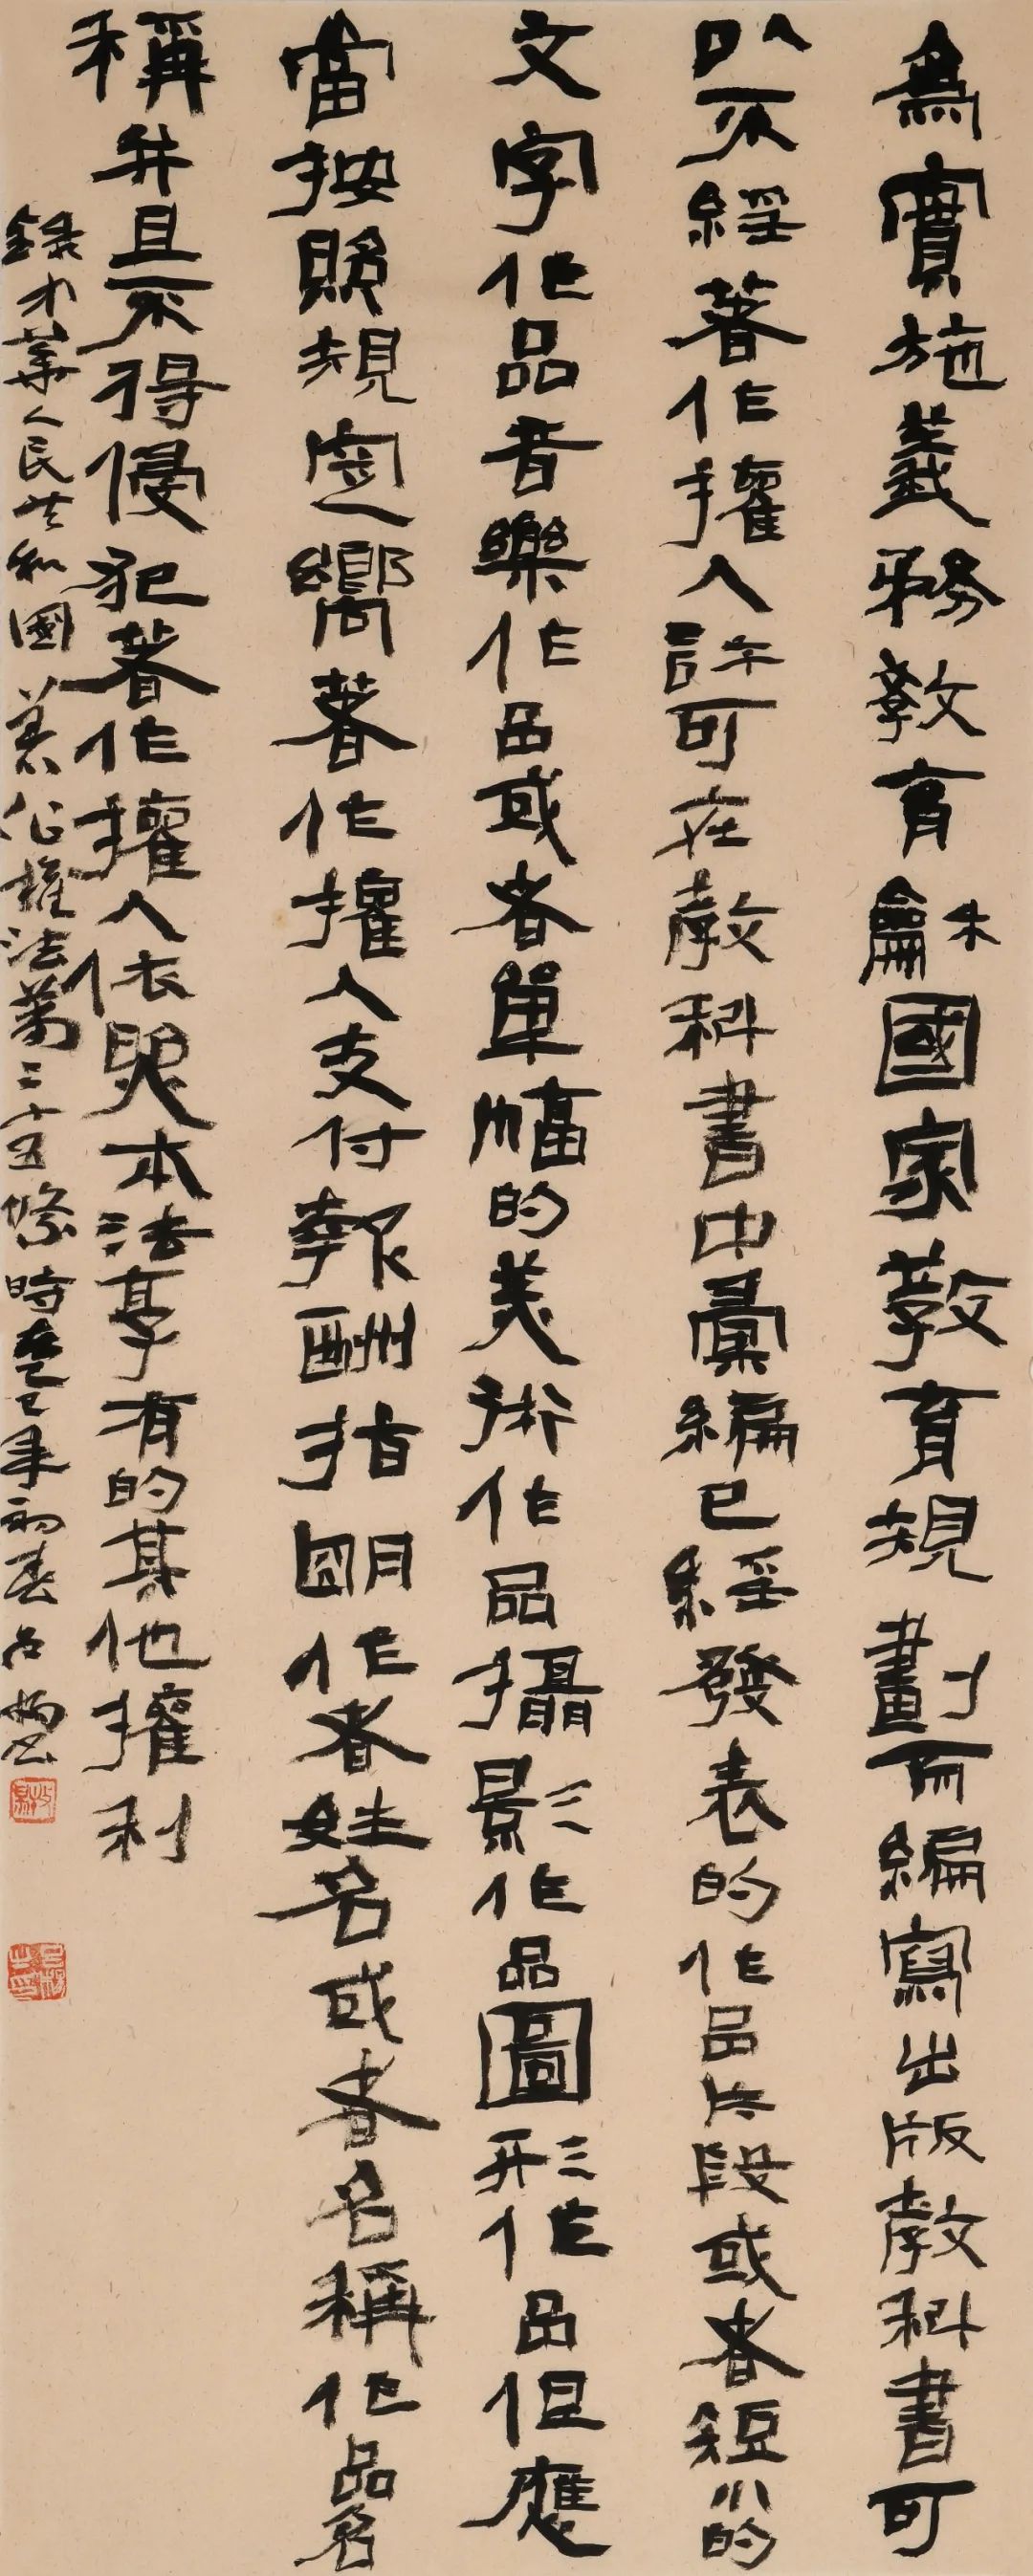 為實施義務教育龢國家教育規劃而編寫出版教科書可
以不經著作權人許可在教科書中彙編已經發表的作品片段或者短小的
文字作品音樂作品或者單幅的美術作品攝影作品圖形作品但應
當按照規定嚮著作權人支付報酬指明作者姓名或者名稱作品名
稱并且不得侵犯著作權人依照本法享有的其他權利
錄中華人民共和國著作權法第二十五條時乙巳年初春